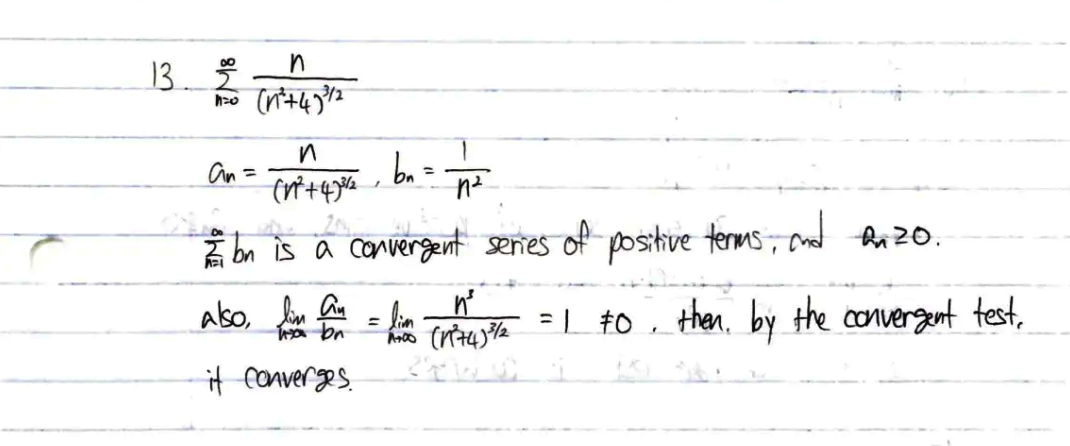 13. ∞∑n=0 n/(n²+4)^3/2
an = n/(n²+4)^3/2 , bn = 1/n²
∞∑n=1 bn is a convergent series of positive terms, and an ≥ 0.
also, lim n→∞ an/bn = lim n→∞ n³/(n²+4)^3/2 = 1 ≠ 0 . then. by the convergent test,
it converges.